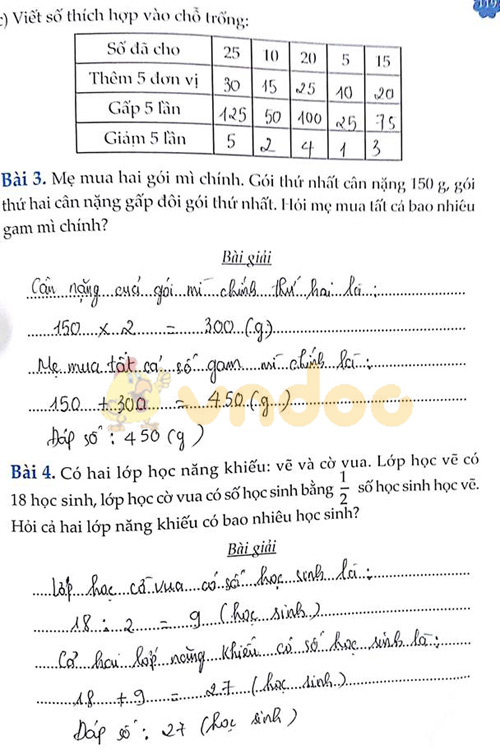 119
c) Viết số thích hợp vào chỗ trống:
Số đã cho 25 10 20 5 15
Thêm 5 đơn vị 30 15 25 10 20
Gấp 5 lần 125 50 100 25 75
Giảm 5 lần 5 2 4 1 3
Bài 3. Mẹ mua hai gói mì chính. Gói thứ nhất cân nặng 150 g, gói
thứ hai cân nặng gấp đôi gói thứ nhất. Hỏi mẹ mua tất cả bao nhiêu
gam mì chính?
Bài giải
Cân nặng cuả gói mì chính thứ hai là:
150 x 2 = 300 (g)
Mẹ mua tất cả số gam mì chính là:
150 + 300 = 450 (g)
Đáp số : 450 (g)
vndoc
Bài 4. Có hai lớp học năng khiếu: vẽ và cờ vua. Lớp học vẽ có
18 học sinh, lớp học cờ vua có số học sinh bằng 1/2 số học sinh học vẽ.
Hỏi cả hai lớp năng khiếu có bao nhiêu học sinh?
Bài giải
Lớp học cờ vua có số học sinh là:
18 : 2 = 9 (học sinh)
Cả hai lớp năng khiếu có số học sinh là:
18 + 9 = 27 (học sinh)
Đáp số : 27 (học sinh)